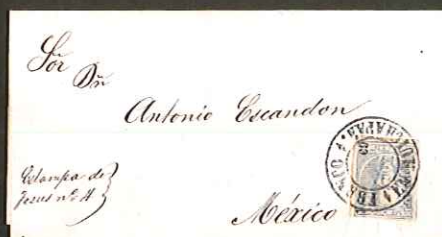 Sr̃or
Dñ
Antonio Escandon
Estampa de
Jesus nº 4
México